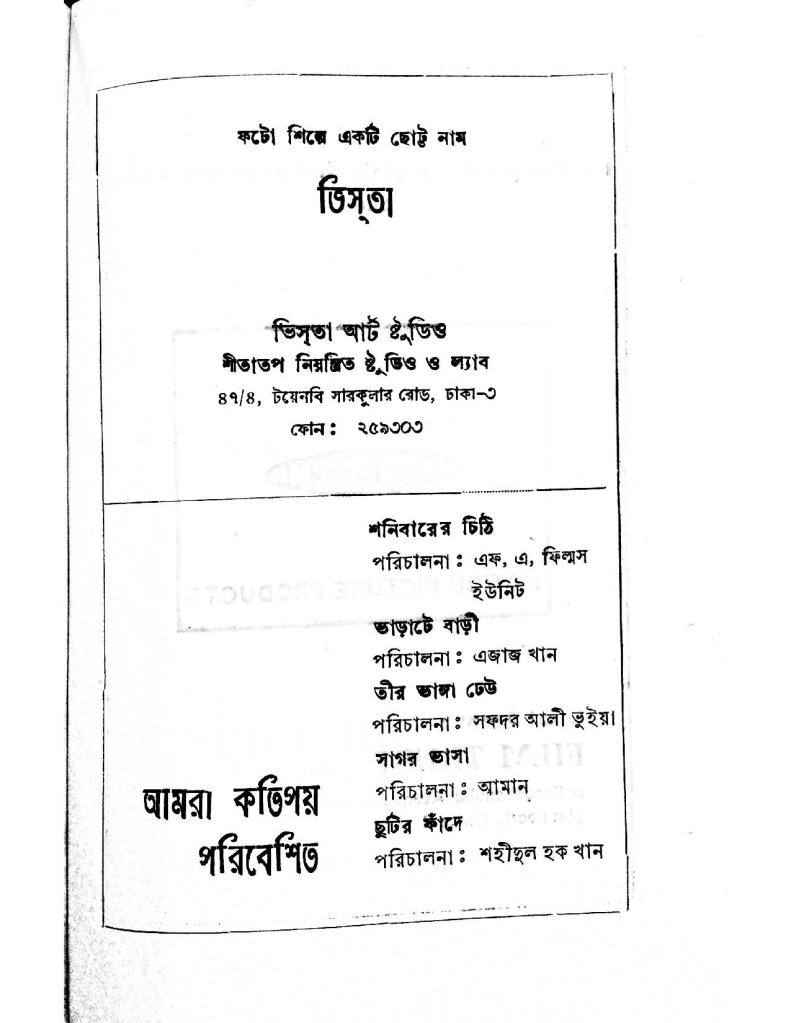 ফটো শিল্পে একটি ছোট্ট নাম
ভিস্তা
ভিস্তা আর্ট ষ্টুডিও
শীতাতপ নিয়ন্ত্রিত ষ্টুডিও ও ল্যাব
৪৭/৪, টয়েনবি সারকুলার রোড, ঢাকা-৩
ফোন: ২৫৯৩০৩
শনিবারের চিঠি
পরিচালনা: এফ, এ, ফিল্মস
ইউনিট
ভাড়াটে বাড়ী
পরিচালনা: এজাজ খান
তীর ভাঙ্গা ঢেউ
পরিচালনা: সফদর আলী ভুইয়া
সাগর ভাসা
পরিচালনা: আমান
ছুটির ফাঁদে
পরিচালনা: শহীদুল হক খান
আমরা কতিপয়
পরিবেশিত